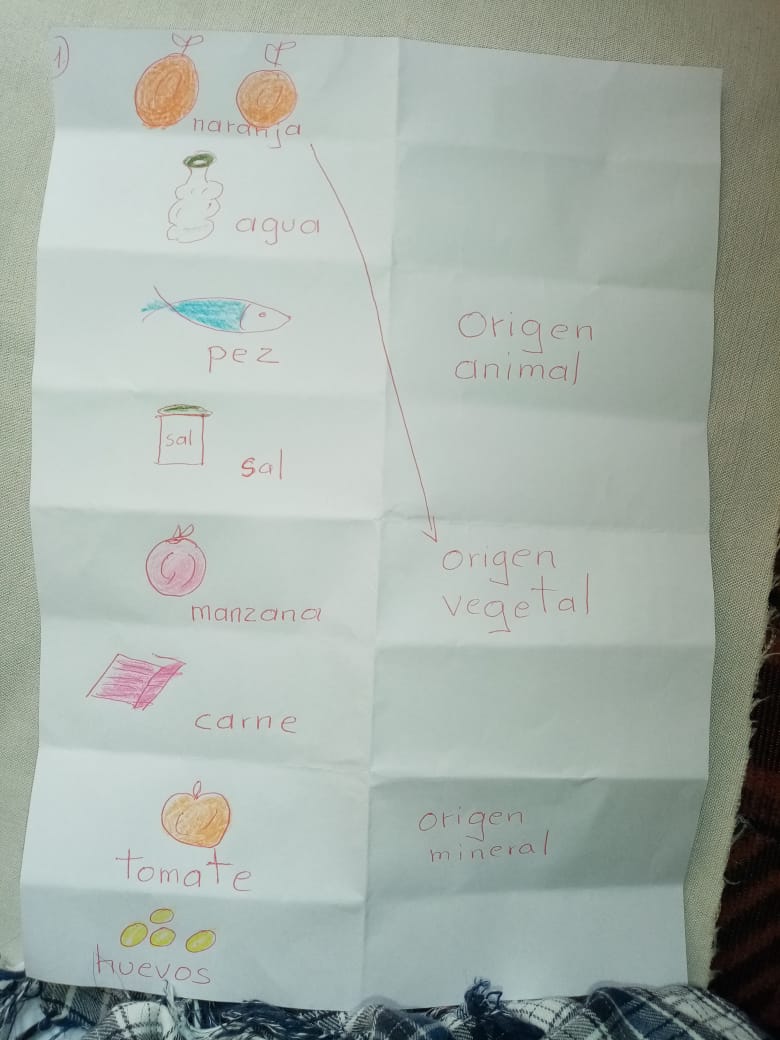 1)
naranja
agua
pez
sal
sal
manzana
carne
tomate
huevos
Origen
animal
origen
vegetal
origen
mineral